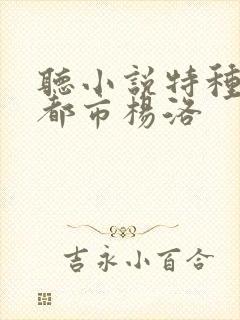 聽小說特種
都市楊洛
吉永小百合